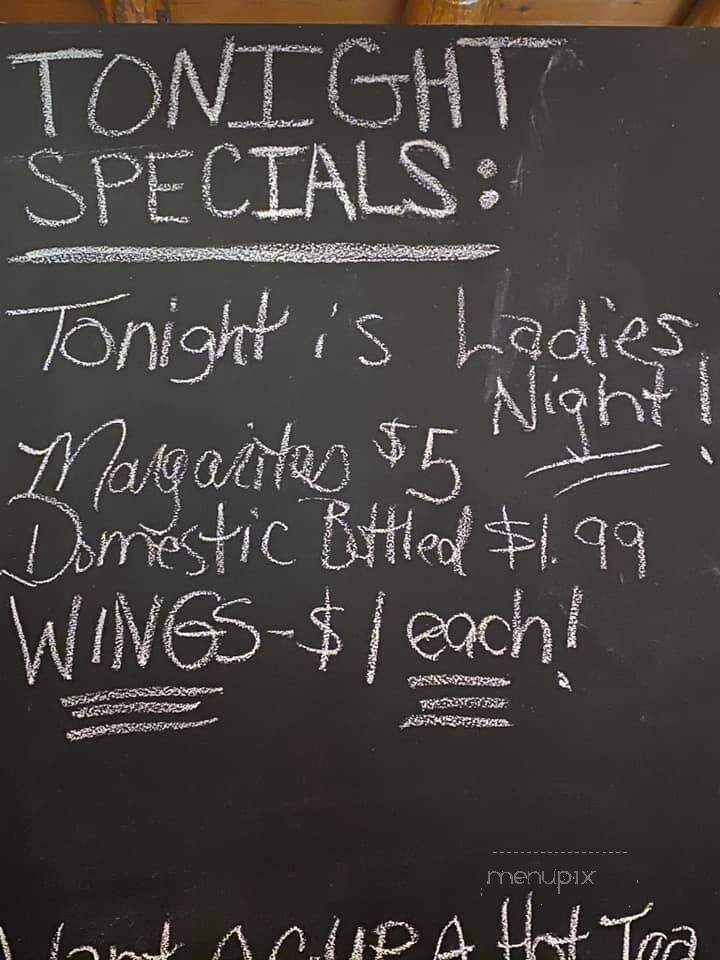 TONIGHT
SPECIALS:
Tonight is Ladies
Night!
Margaritas $5
Domestic Bottled $1.99
WINGS-$1 each!
menupix
Want A CUP A Hot Tea